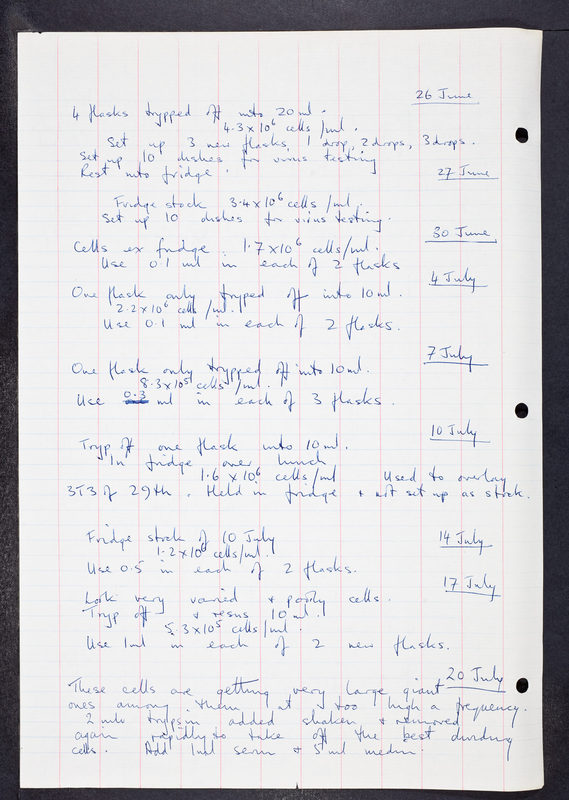 26 June
4 flasks trypped off into 20 ml.
4.3 x 10⁶ cells / ml.
Set up 3 new flasks, 1 drop, 2 drops, 3 drops.
Set up 10 dishes for virus testing
Rest into fridge.
27 June
Fridge stock 3.4 x 10⁶ cells / ml.
Set up 10 dishes for virus testing.
30 June
Cells ex fridge. 1.7 x 10⁶ cells / ml.
Use 0.1 ml in each of 2 flasks
4 July
One flask only tryped off into 10 ml.
2.2 x 10⁶ cells / ml.
Use 0.1 ml in each of 2 flasks.
7 July
One flask only trypped off into 10 ml.
8.3 x 10⁵ cells / ml.
Use 0.3 ml in each of 3 flasks.
10 July
Tryp off one flask into 10 ml.
In fridge over lunch
1.6 x 10⁶ cells / ml Used to overlay
3T3 of 29th. Held in fridge + not set up as stock.
Fridge stock of 10 July
14 July
1.2 x 10⁶ cells / ml.
Use 0.5 in each of 2 flasks.
17 July
Look very varied + poorly cells.
Tryp off + resus 10 ml.
5.3 x 10⁵ cells / ml.
Use 1 ml in each of 2 new flasks.
20 July
These cells are getting very large giant
ones among them, at too high a frequency.
2 mls trypsin added shaken + removed
again rapidly to take off the best dividing
cells. Add 1 ml serum + 5 ml medium.